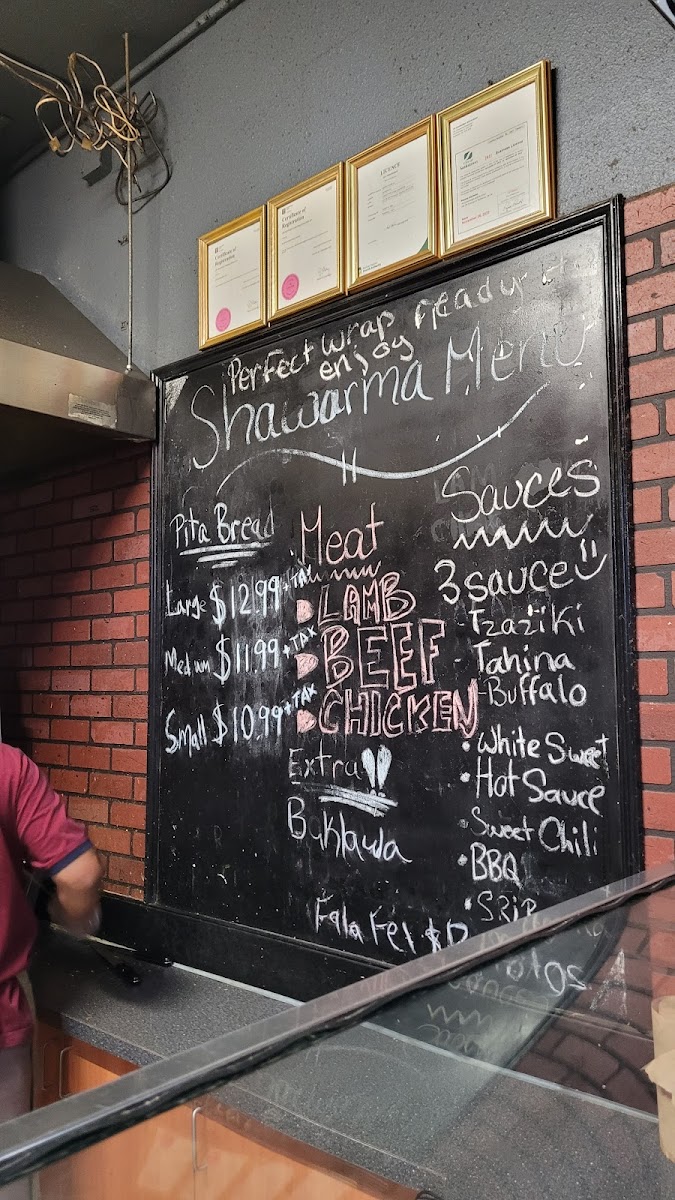 Certificate of
Registration
Certificate of
Registration
LICENCE
Perfect wrap ready
enjoy
Shawarma Menu
Pita Bread
Large $12.99 + TAX
Medium $11.99 + TAX
Small $10.99 + TAX
Meat
LAMB
BEEF
CHICKEN
Extra!!
Baklawa
Falafel
Sauces
3 sauce
- Tzaziki
- Tahina
- Buffalo
• White Sweet
• Hot Sauce
• Sweet Chili
• BBQ